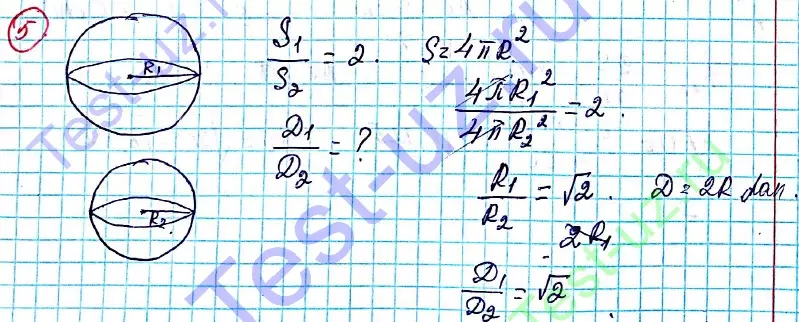 5
R₁
S₁/S₂ = 2. S = 4πR².
4πR₁²/4πR₂² = 2.
D₁/D₂ = ?
R₁/R₂ = √2. D = 2R dan.
R₂
2R₁
D₁/D₂ = √2.
Test-uz.ru
Test-uz.ru
Test-uz.ru